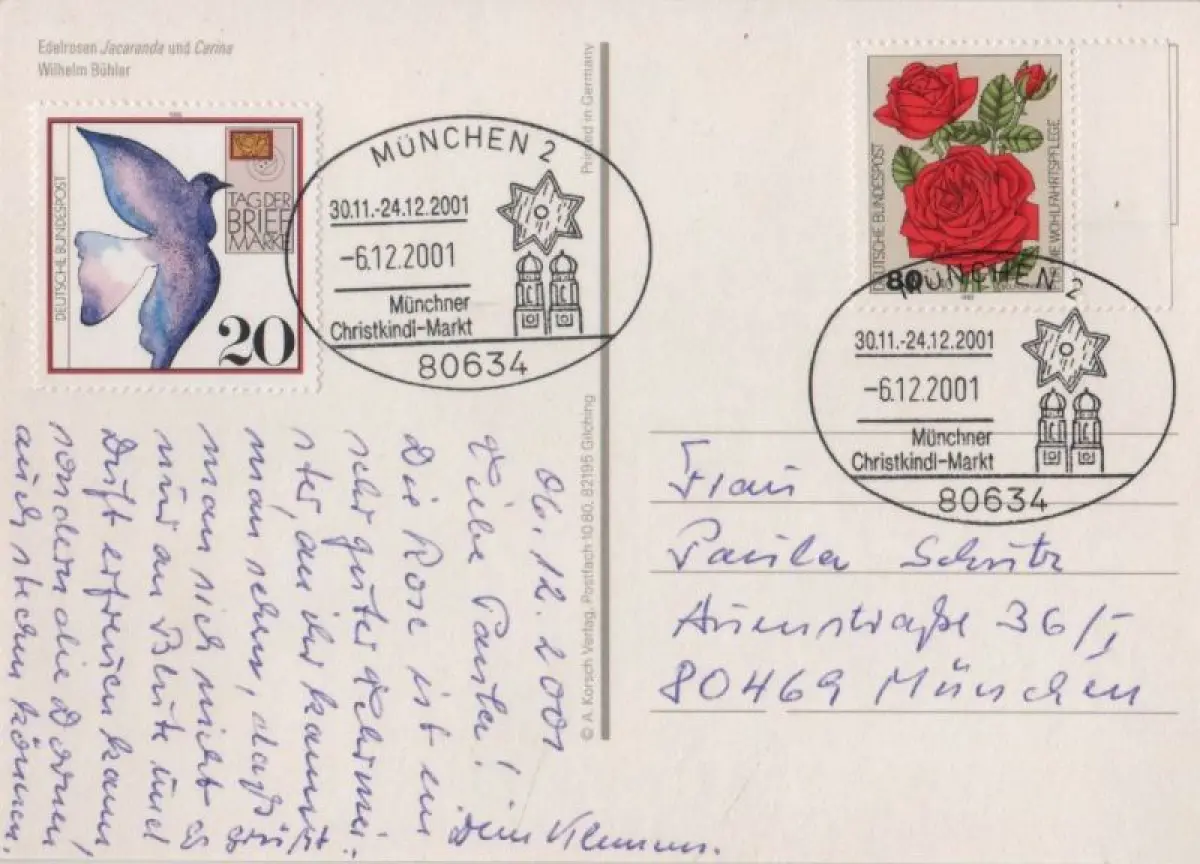 Edelrosen Jacaranda und Carina
Wilhelm Bühler
DEUTSCHE BUNDESPOST
TAG DER
BRIEF
MARKE
20
MÜNCHEN 2
30.11.-24.12.2001
-6.12.2001
Münchner
Christkindl-Markt
80634
Printed in Germany
© A. Korsch Verlag, Postfach 10 80, 82195 Gilching
DEUTSCHE BUNDESPOST
80
WOHLFAHRTSPFLEGE
MÜNCHEN 2
30.11.-24.12.2001
-6.12.2001
Münchner
Christkindl-Markt
80634
06.12.2001
Liebe Paula!
Die Rose ist ein
sehr guter Lehrmei-
ster, an ihr kannst
man sehen, daß
man sich nicht
nur an Blüte und
Duft erfreuen kann,
sondern die Dornen
auch stechen können.
Es grüßt
Dein Klemens.
Frau
Paula Schütz
Auenstraße 36/I
80469 München